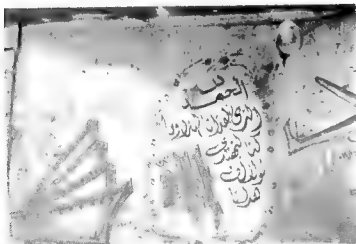 الحمد لله
الذي هدانا لهذا وما
كنا لنهتدي
لولا أن
هدانا